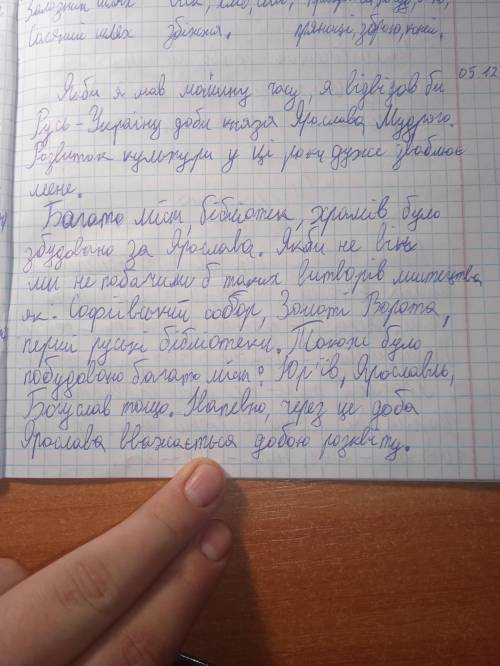 Залізний шлях
Соляний шлях збіжжя. прянощі, зброю, коні.
05.12
Якби я мав машину часу, я відвідав би
Русь-Україну доби князя Ярослава Мудрого.
Розвиток культури у ці роки дуже зваблює
мене.
Багато міст, бібліотек, храмів було
збудовано за Ярослава. Якби не він
ми не побачили б таких витворів мистецтва,
як: Софіївський собор, Золоті Ворота,
перші руські бібліотеки. Також було
побудовано багато міст: Юр'їв, Ярославль,
Богуслав тощо. Напевно, через це доба
Ярослава вважається добою розквіту.